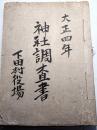 大正四年
神社調査書
下田村役場